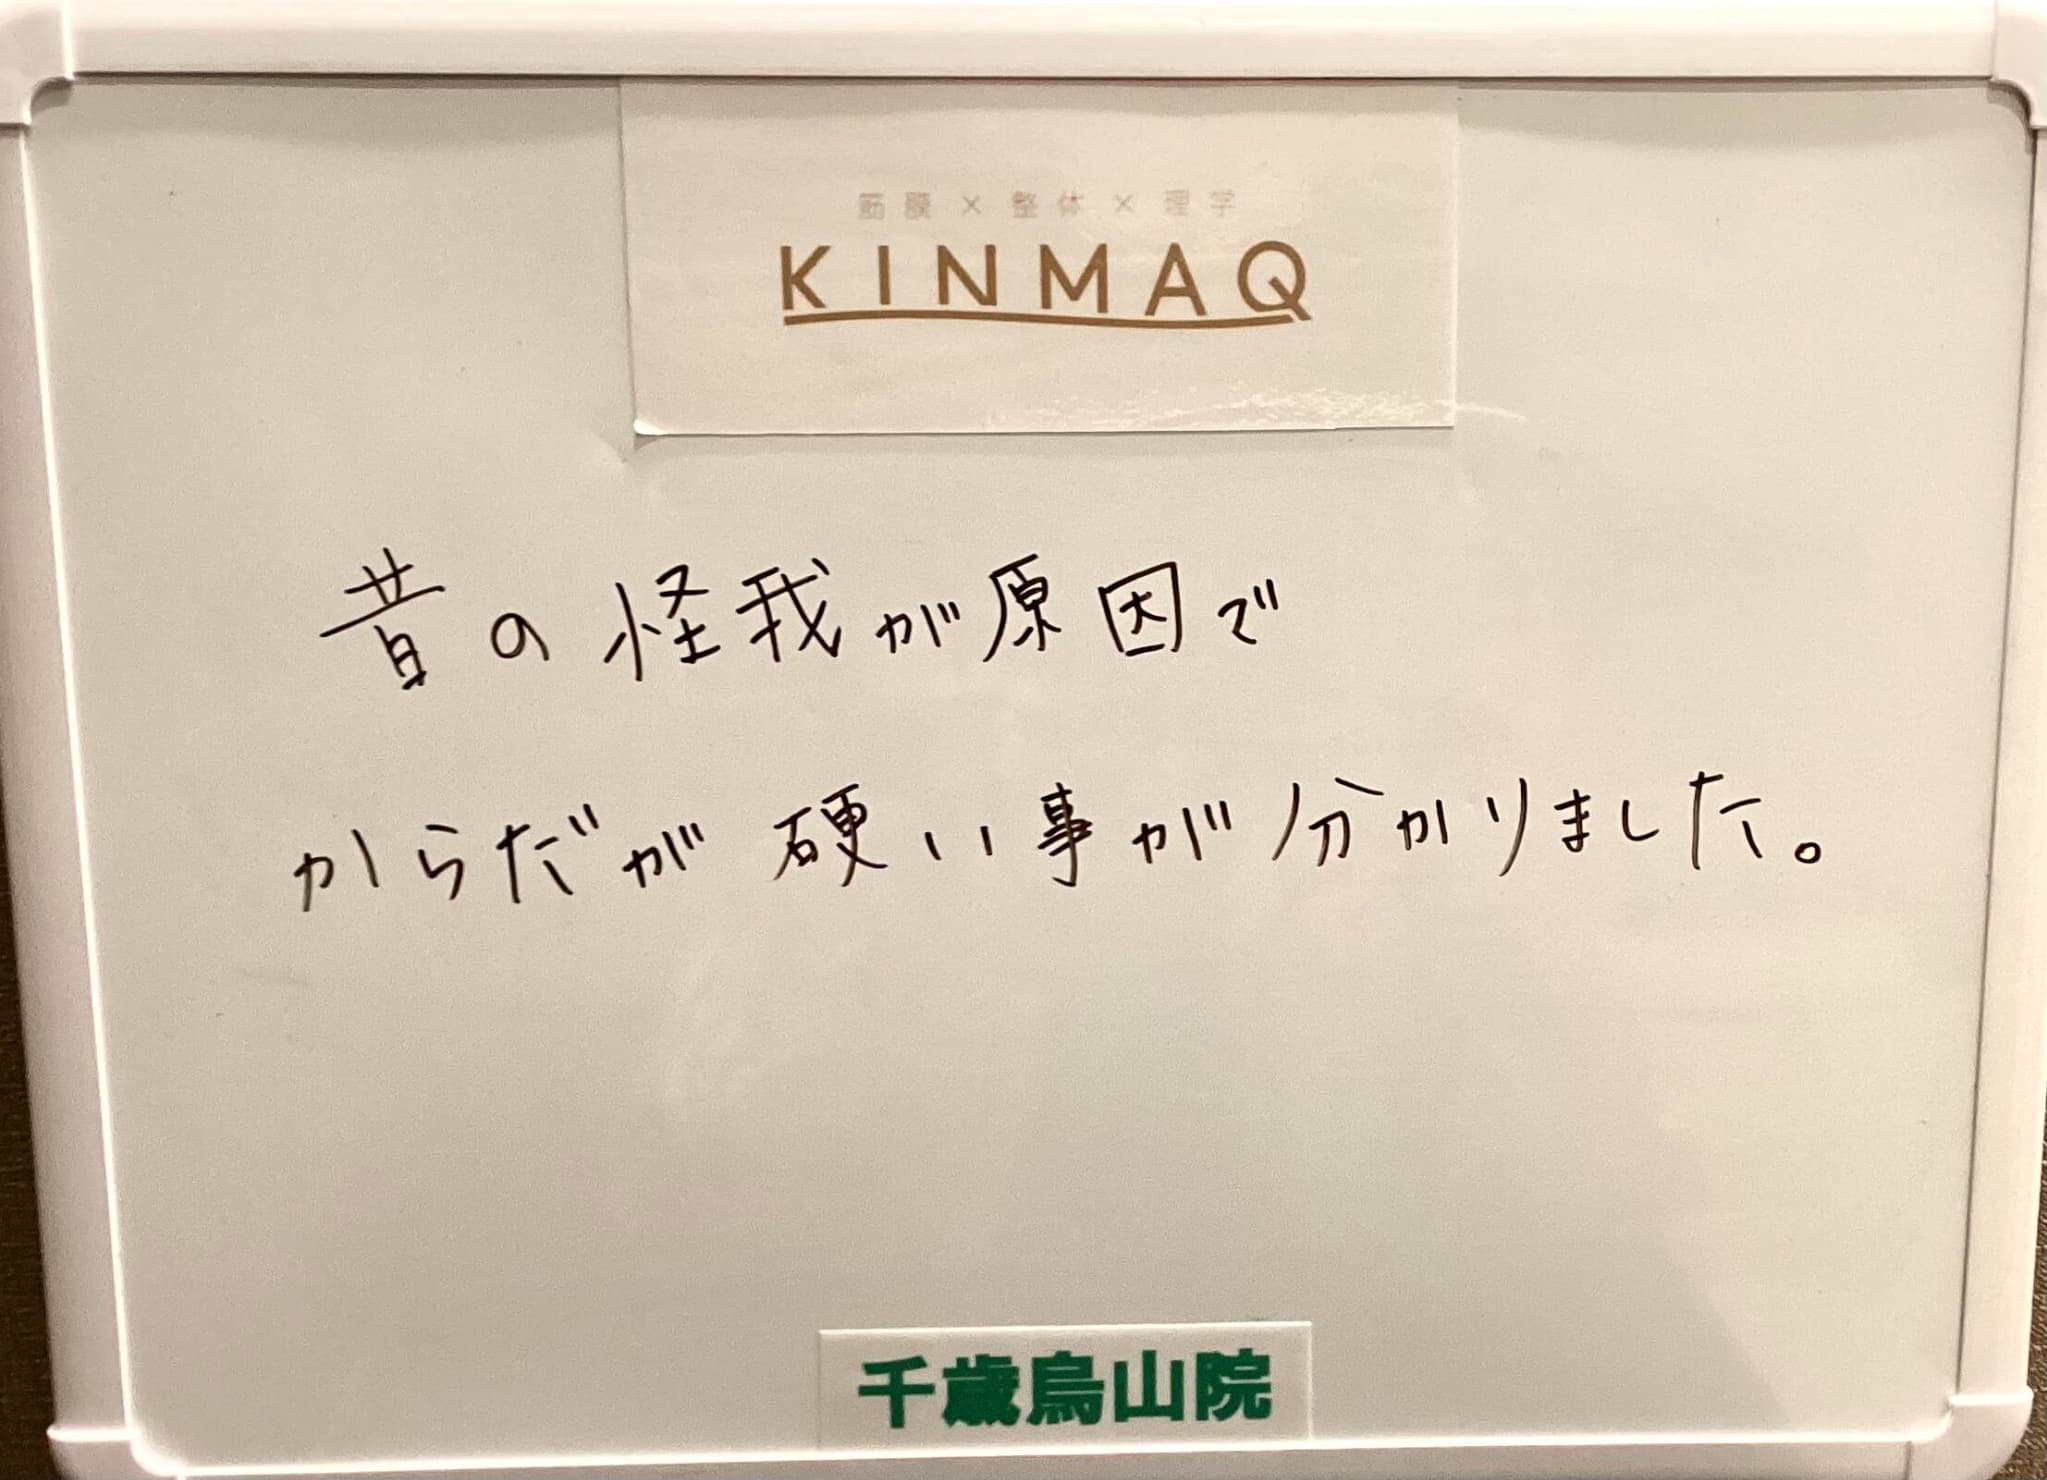 筋膜×整体×理学
KINMAQ
昔の怪我が原因で
からだが硬い事が分かりました。
千歳烏山院